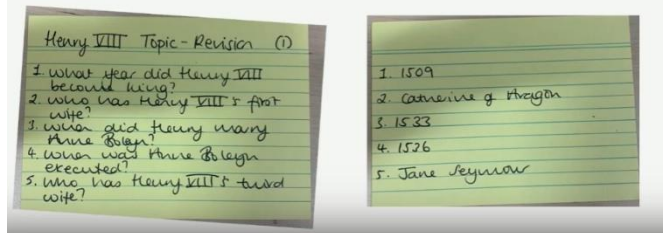 Henry VIII Topic - Revision (1)
1. What year did Henry VIII
become king?
2. Who was Henry VIII's first
wife?
3. When did Henry marry
Anne Boleyn?
4. When was Anne Boleyn
executed?
5. Who was Henry VIII's third
wife?
1. 1509
2. Catherine of Aragon
3. 1533
4. 1536
5. Jane Seymour